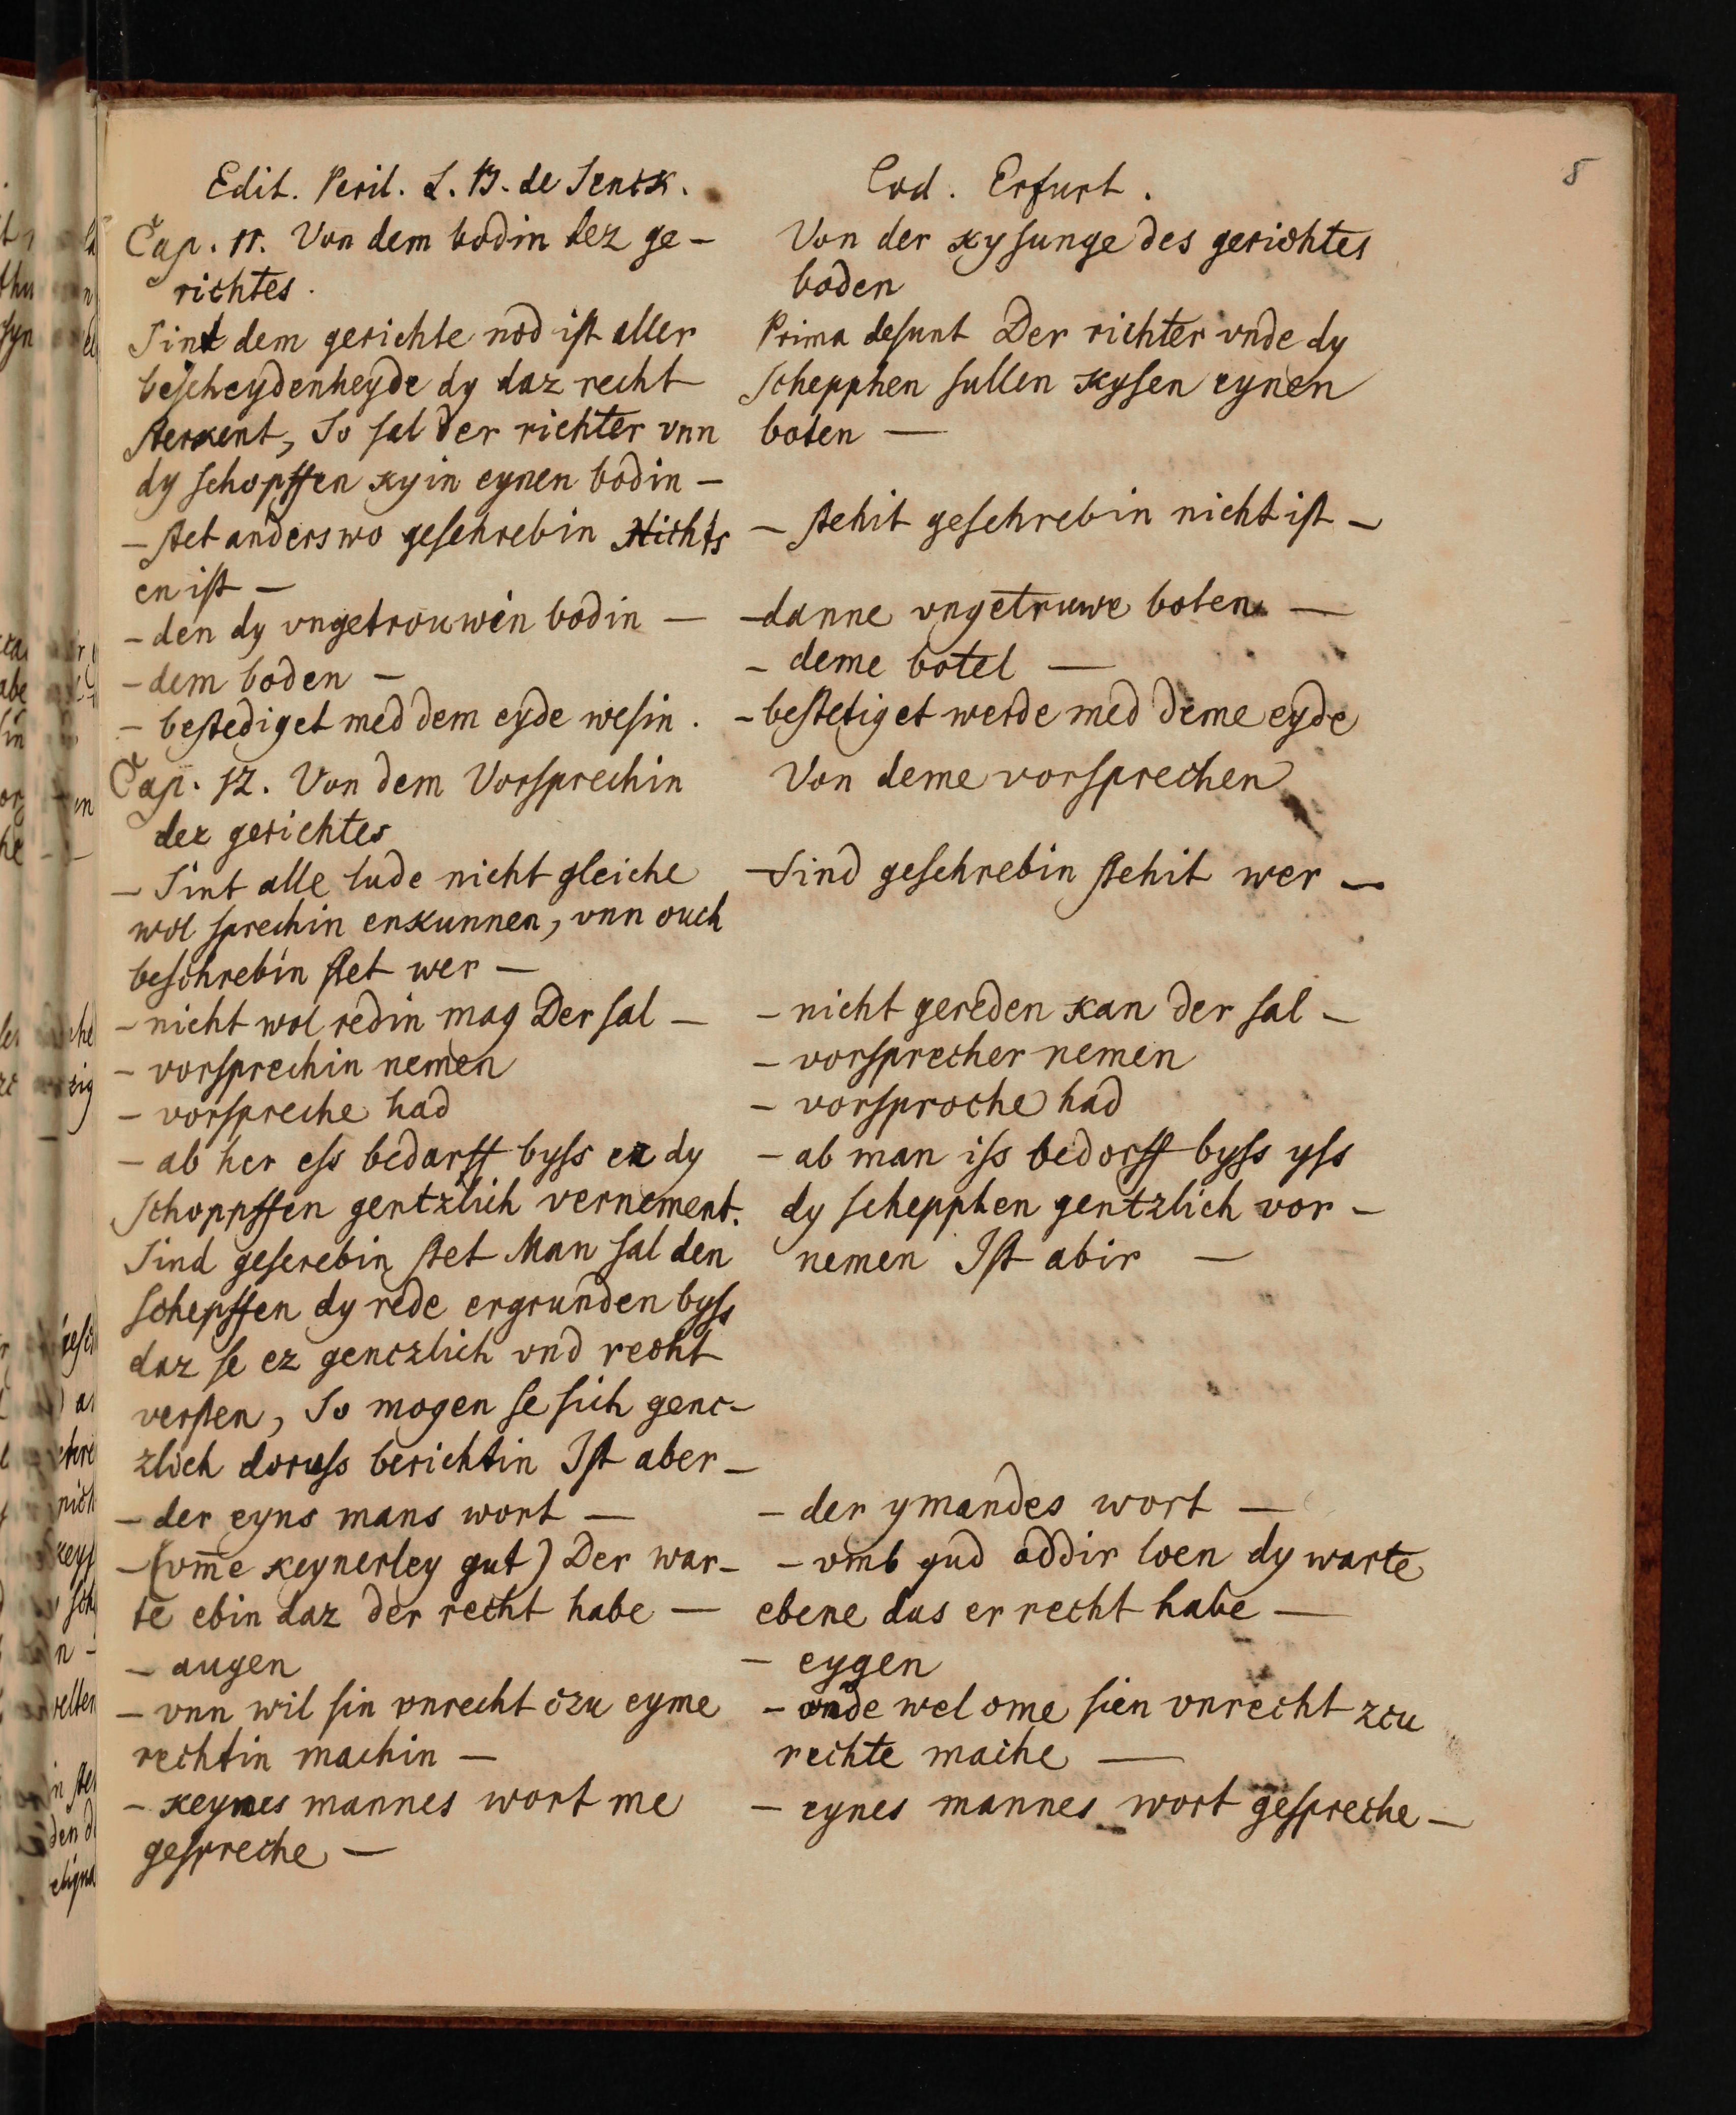 8
Edit. Peril. L. B. de Senck.
Cap. 11. Von dem bodin dez ge-
richtes.
Sint dem gerichte nod ist aller
bescheydenheyde dy daz recht
sterkent, So sal der richter vnn
dy schopffen kyin eynen bodin -
- stet anderswo geschrebin Nichts
en ist -
- den dy vngetrouwen bodin -
- dem boden -
- bestediget med dem eyde wesin.
Cap. 12. Von dem Vorsprechin
dez gerichtes
- Sint alle lude nicht gleiche
wol sprechin enkunnen, vnn ouch
beschrebin stet wer -
- nicht wol redin mag Der sal -
- vorsprechin nemen
- vorspreche had
- ab her ess bedarff byss ez dy
schoppffen gentzlich vernement.
Sind gescrebin stet Man sal den
schepffen dy rede ergrunden byss
daz se ez genczlich vnd recht
versten, So mogen se sich genc-
zlich doruss berichtin Ist aber -
- der eyns mans wort -
- (vm̄e keynerley gut) Der war-
te ebin daz der recht habe -
- augen
- vnn wil sin vnrecht czu eyme
rechtin machin -
- keynes mannes wort me
gespreche -
Cod. Erfurt.
Von der kysunge des gerichtes
boden
Prima desunt Der richter vnde dy
schepphen sullen kysen eynen
boten -
- stehit geschrebin nicht ist -
- danne vngetruwe boten -
- deme botel -
- bestetiget werde med deme eyde
Von deme vorsprechen
- Sind geschrebin stehit wer -
- nicht gereden kan der sal -
- vorsprecher nemen
- vorsproche had
- ab man iss bedorff byss yss
dy schepphen gentzlich vor-
nemen Ist abir -
- der ymandes wort -
- vmb gud addir loen dy warte
ebene das er recht habe -
- eygen
- vnde wel ome sien vnrecht zcu
rechte mache -
- eynes mannes wort gespreche -